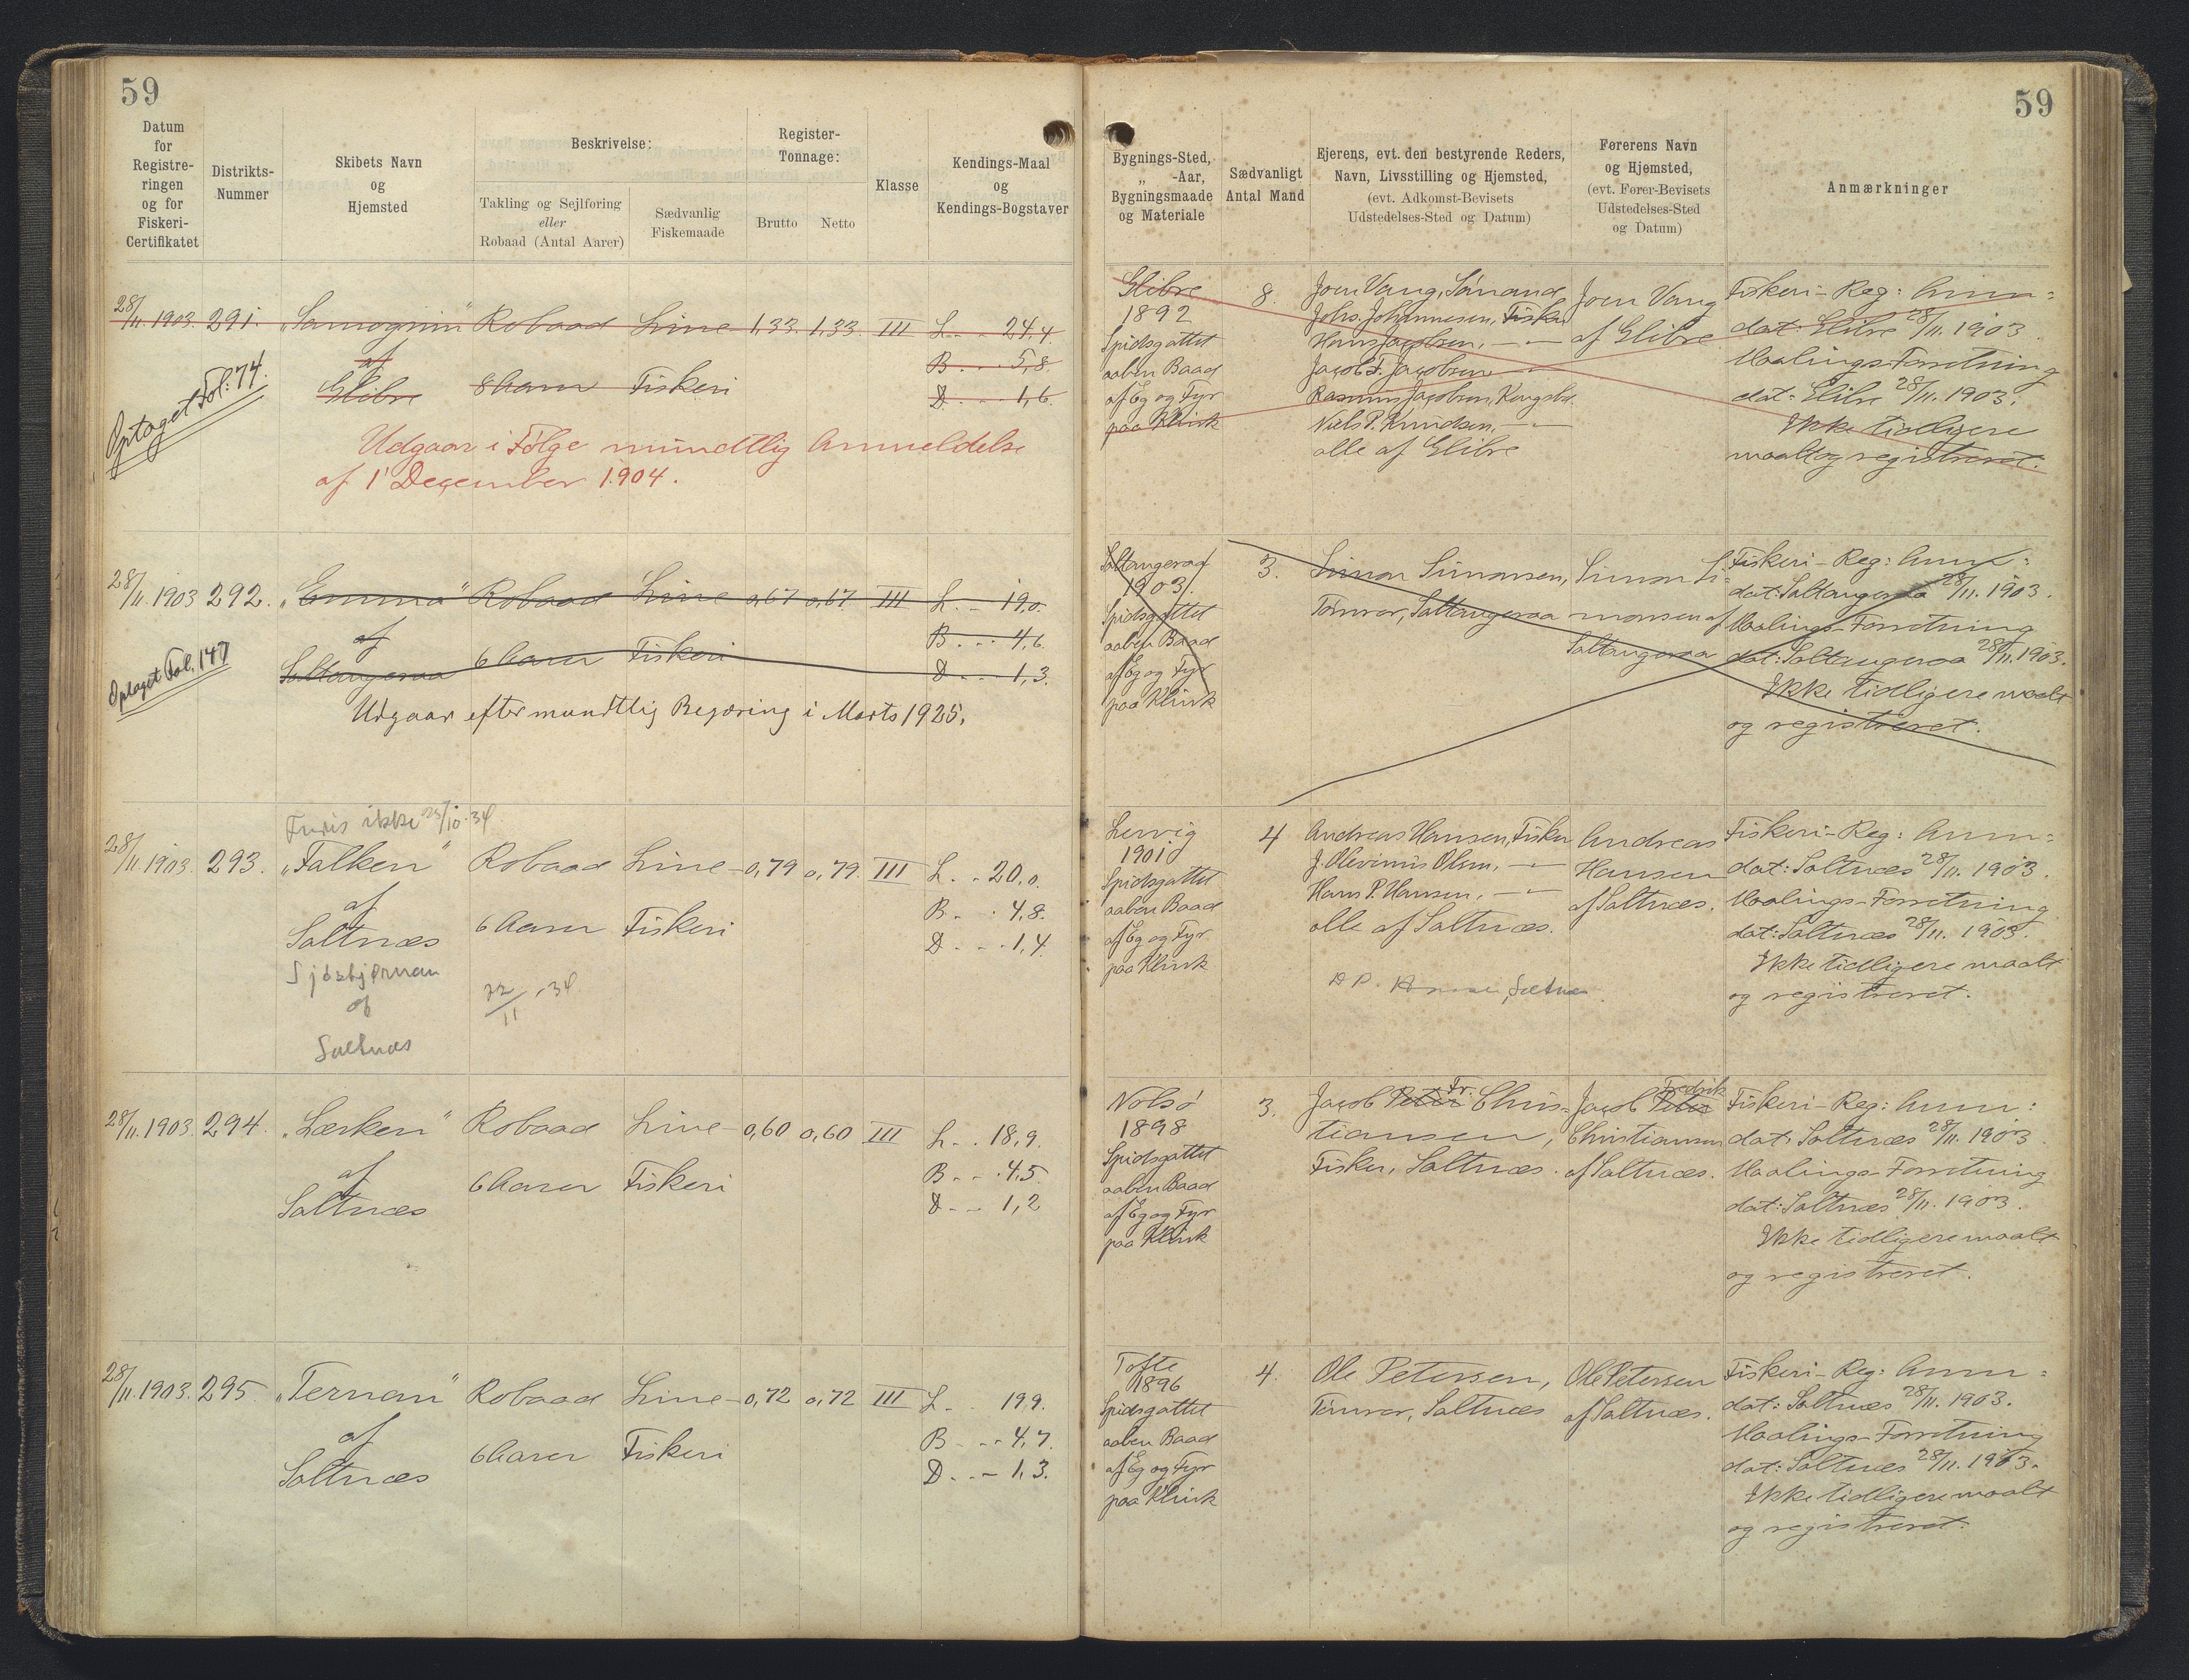 59
Datum
for
Registre-
ringen
og for
Fiskeri-
Certifikatet
Distrikts-
Nummer
Skibets Navn
og
Hjemsted
Beskrivelse:
Takling og Sejlføring
eller
Robaad (Antal Aarer)
Sædvanlig
Fiskemaade
Register-
Tonnage:
Brutto Netto
Klasse
Kendings-Maal
og
Kendings-Bogstaver
28/11.1903. 291. Robaad Line- 1,33. 1,33. III L. - - 24,4.
af B. - - 5,8.
Glibre 8 Aarer Fiskeri D. - - 1,6.
Optaget Fol: 74.
Udgaar i Følge mündtlig Anmeldelse
af 1' December 1904.
28/11.1903 292. "Emma" Robaad Line 0,67 0,67 III L. - 19,0.
af B. - - 4,6.
Saltangeraa 6 Aarer Fiskeri D. - - 1,3.
Optaget Fol. 147
Udgaar efter mundtlig Begæring i Marts 1925.
ikke 25/10.34.
28/11.1903. 293. "Falken" Robaad Line- 0,79 0,79. III L. - 20,0.
af B. - . 4,8.
Saltnæs 6 Aarer Fiskeri D. - - 1,4.
af 22/11.34.
Saltnæs
28/11.1903. 294. "Lærken" Robaad Line- 0,60 0,60 III L. . 18,9.
af B. - - 4,5.
Saltnæs 6 Aarer Fiskeri D. - - 1,2
28/11.1903. 295. "Ternan" Robaad Line- 0,72 0,72 III L. . 19,9.
af B. - - 4,7.
Saltnæs 6 Aarer Fiskeri D. - - 1,3.
59
Bygnings-Sted,
„ -Aar,
Bygningsmaade
og Materiale
Sædvanligt
Antal Mand
Ejerens, evt. den bestyrende Reders,
Navn, Livsstilling og Hjemsted,
(evt. Adkomst-Bevisets
Udstedelses-Sted og Datum)
Førerens Navn
og Hjemsted,
(evt. Fører-Bevisets
Udstedelses-Sted
og Datum)
Anmærkninger
Glibre
1892
Spidsgattet
aaben Baad
af Eg og Fyr
paa Klink
8.
Joen Vang,
Johs. Johannesen, Fisker
Hans Jacobsen, - " -
Jacob F. Jacobsen - " -
Rasmus Jacobsen,
Niels P. Knudsen, - " -
alle af Glibre
Joen Vang
af Glibre
Fiskeri-Reg: Anm=
dat: Glibre 28/11. 1903
Maalings-Forretning
dat: Glibre 28/11. 1903.
Ikke tidligere
maalt og registreret.
Saltangeraa
1903.
Spidsgattet
aaben Baad
af Eg og Fyr
paa Klink
3.
Simon Simonsen,
Tømrer, Saltangeraa
Simon Si=
monsen af
Saltangeraa
Fiskeri-Reg: Anm:
dat: Saltangeraa 28/11. 1903.
Maalings-Forretning
dat: Saltangeraa 28/11. 1903.
Ikke tidligere maalt
og registreret.
Lervig
1901
Spidsgattet
aaben Baad
af Eg og Fyr
paa Klink
4
Andreas Hansen, Fisker
J. Olevinus Olsen, - " -
Hans P. Hansen, - " -
alle af Saltnæs.
Saltnæs
Andreas
Hansen
af Saltnæs.
Fiskeri-Reg: Anm=
dat: Saltnæs 28/11. 1903.
Maalings-Forretning
dat: Saltnæs 28/11. 1903.
Ikke tidligere maalt
og registreret.
Nolsø
1898
Spidsgattet
aaben Baad
af Eg og Fyr
paa Klink
3.
Jacob Peter Fr. Chris=
tiansen,
Fisker, Saltnæs.
Jacob Peter Fredrik
Christiansen
af Saltnæs.
Fiskeri-Reg: Anm:
dat: Saltnæs 28/11. 1903
Maalings-Forretning
dat: Saltnæs 28/11. 1903.
Ikke tidligere maalt
og registreret.
Tofte
1896
Spidsgattet
aaben Baad
af Eg og Fyr
paa Klink
4.
Ole Petersen,
Tømrer, Saltnæs
Ole Petersen
af Saltnæs.
Fiskeri-Reg: Anm=
dat: Saltnæs 28/11. 1903.
Maalings-Forretning
dat: Saltnæs 28/11. 1903.
Ikke tidligere maalt
og registreret.